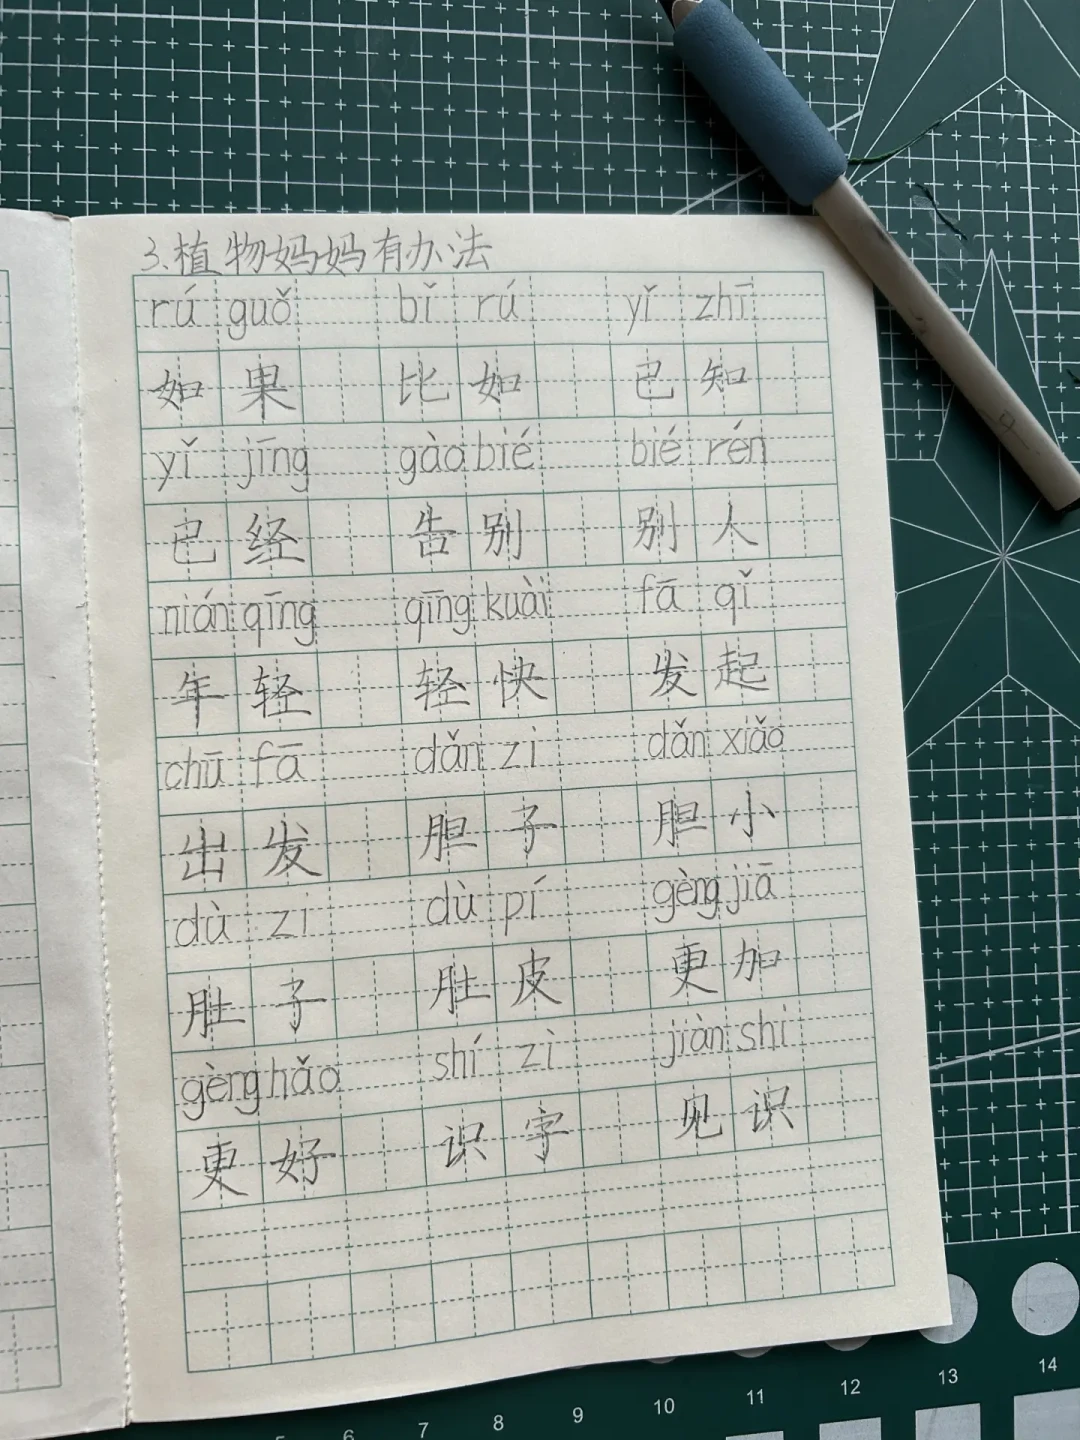 3.植物妈妈有办法
rú guǒ bǐ rú yǐ zhī
如果 比如 已知
yǐ jīng gào bié bié rén
已经 告别 别人
nián qīng qīng kuài fā qǐ
年轻 轻快 发起
chū fā dǎn zi dǎn xiǎo
出发 胆子 胆小
dù zi dù pí gèng jiā
肚子 肚皮 更加
gèng hǎo shí zì jiàn shi
更好 识字 见识
5 6 7 8 9 10 11 12 13 14